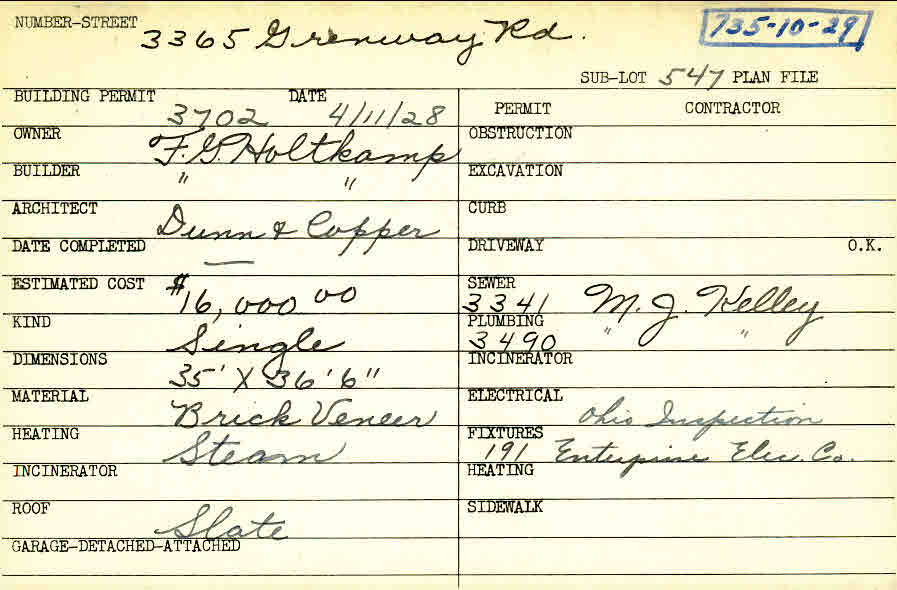 NUMBER-STREET 3365 Grenway Rd. 735-10-29
SUB-LOT 547 PLAN FILE
BUILDING PERMIT 3702 DATE 4/11/28
PERMIT CONTRACTOR
OWNER F. G. Holtkamp
OBSTRUCTION
BUILDER " "
EXCAVATION
ARCHITECT Dunn & Copper
CURB
DATE COMPLETED —
DRIVEWAY O.K.
ESTIMATED COST $16,000 00
SEWER 3341 M. J. Kelley
KIND Single
PLUMBING 3490 " "
DIMENSIONS 35' X 36'6"
INCINERATOR
MATERIAL Brick Veneer
ELECTRICAL Ohio Inspection
HEATING Steam
FIXTURES 191 Enterprise Elec. Co.
INCINERATOR
HEATING
ROOF Slate
SIDEWALK
GARAGE-DETACHED-ATTACHED